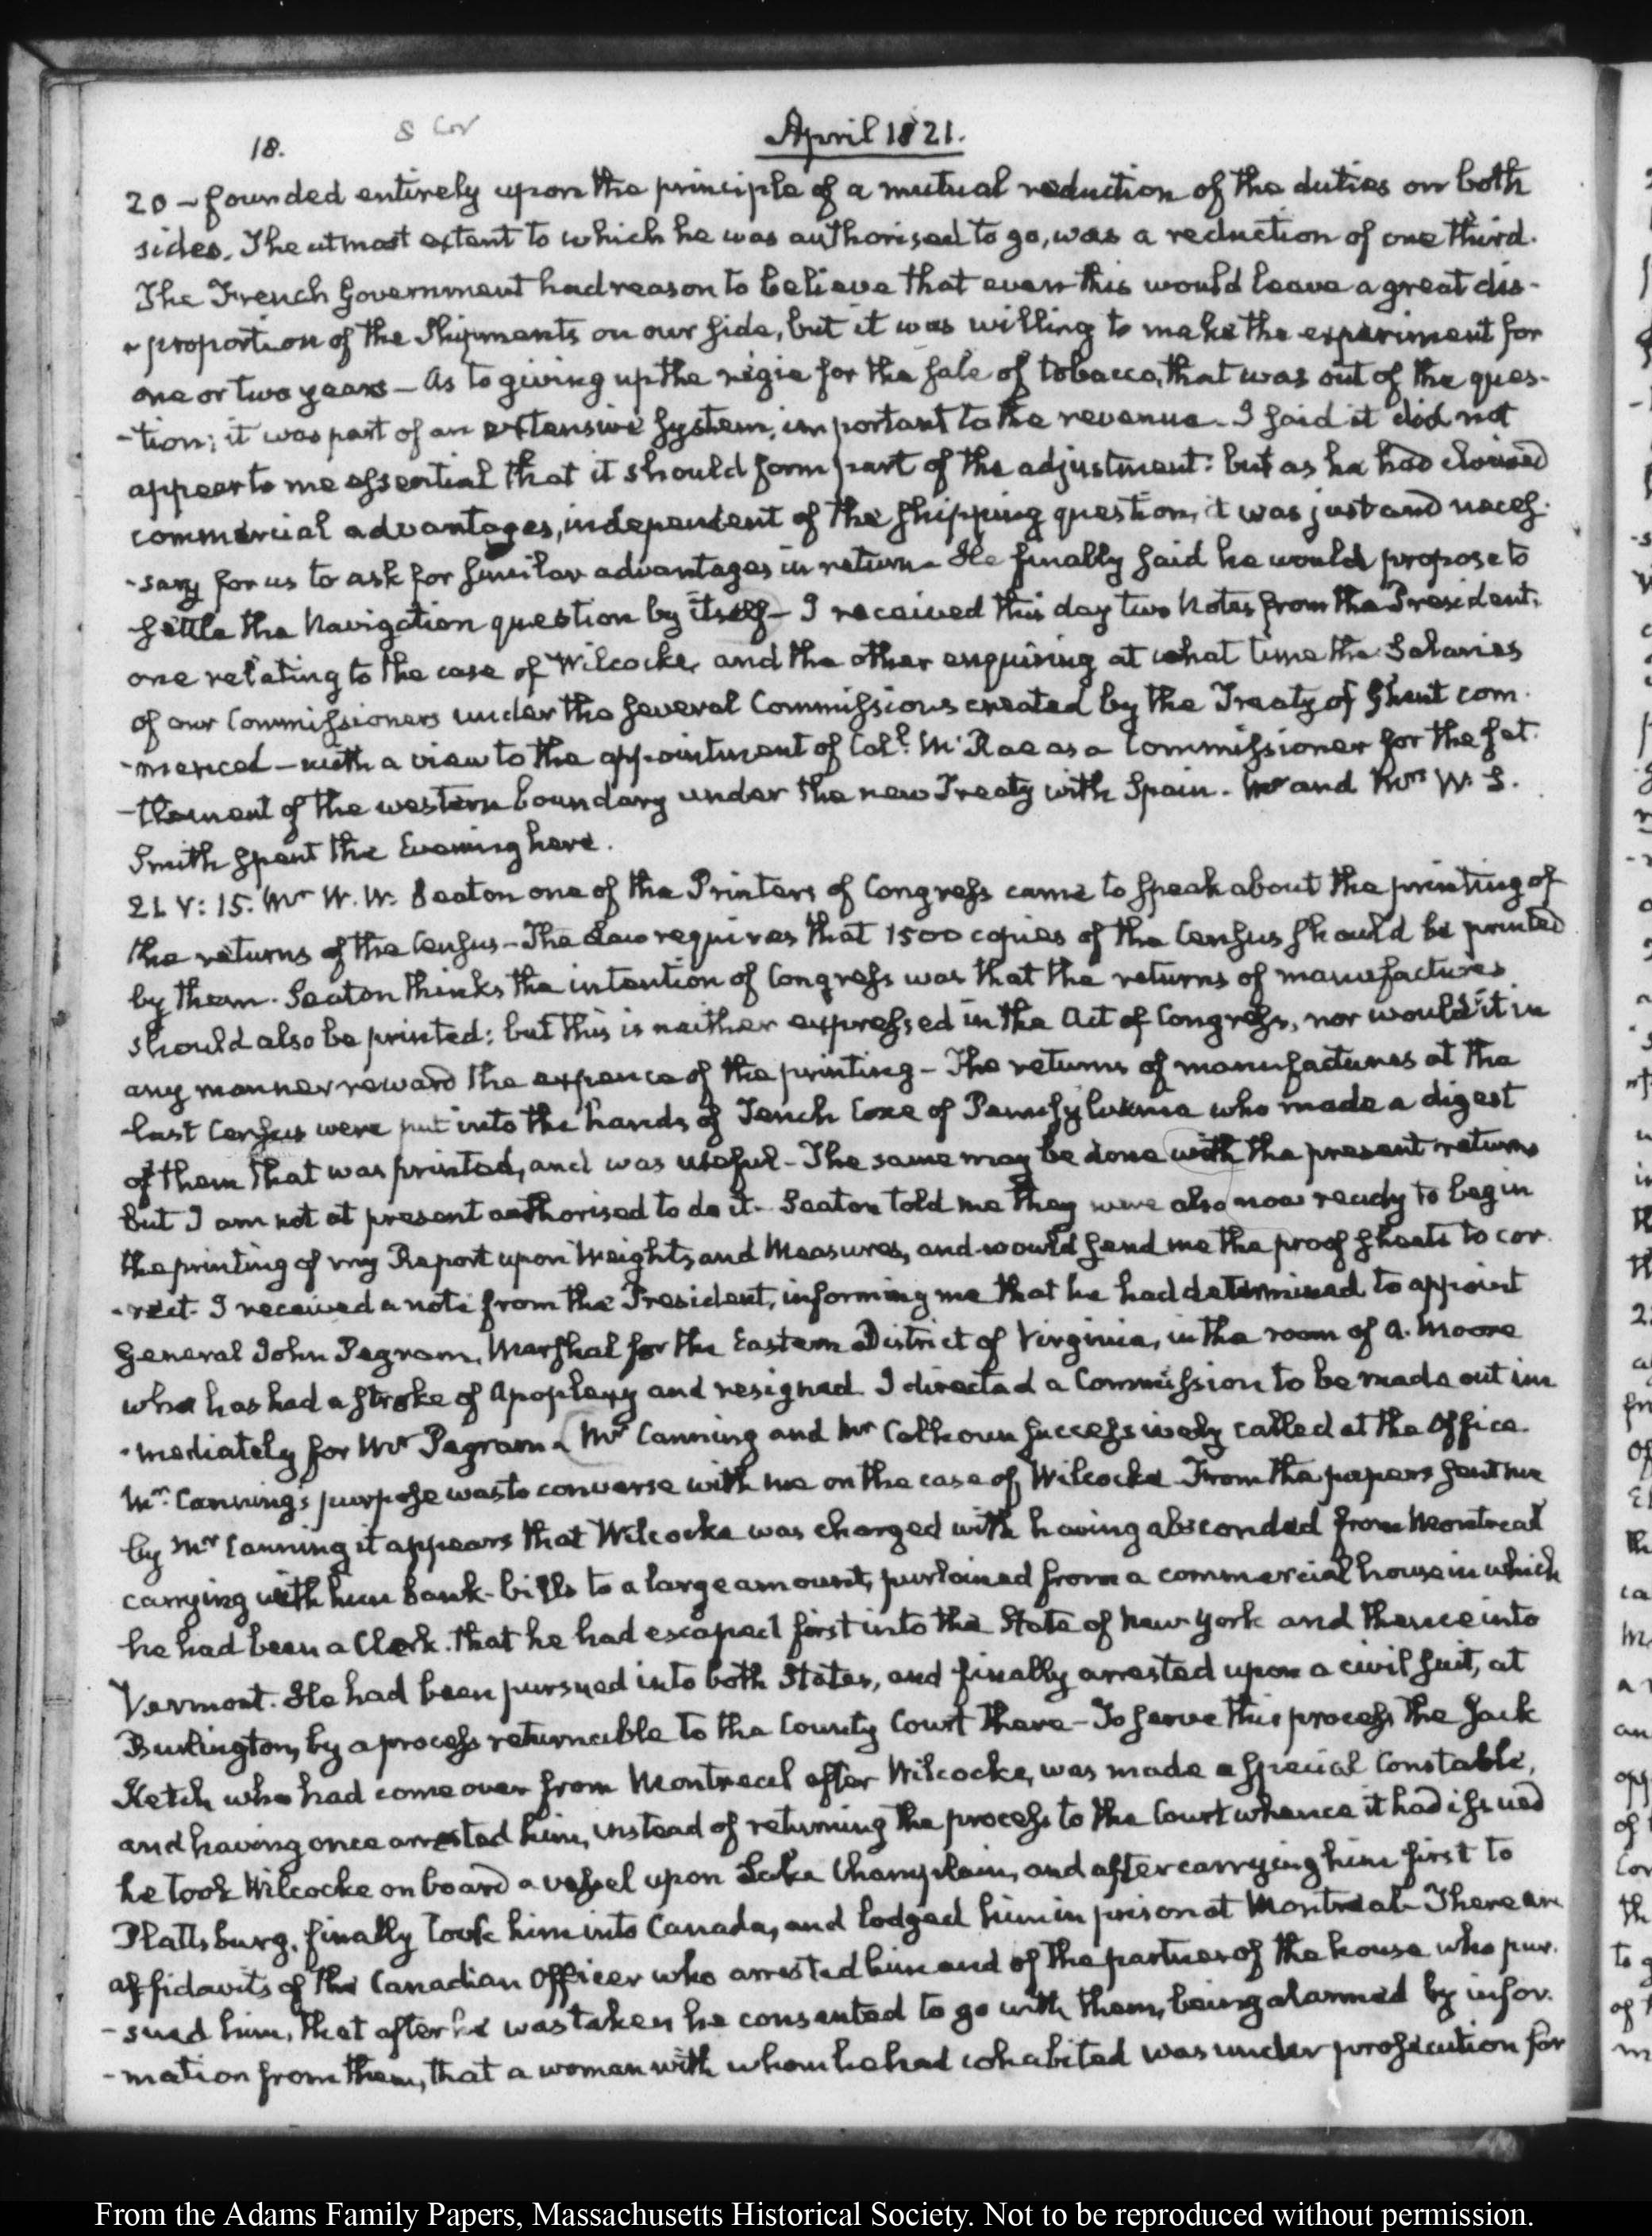 18.
S Cor
April 1821.
20 – founded entirely upon the principle of a mutual reduction of the duties on both
sides. The utmost extent to which he was authorised to go, was a reduction of one third.
The French Government had reason to believe that even this would leave a great dis-
-proportion of the Shipments on our side, but it was willing to make the experiment for
one or two years – As to giving up the régie for the sale of tobacco, that was out of the ques-
-tion; it was part of an extensive System, important to the revenue. I said it did not
appear to me essential that it should form part of the adjustment: but as he had claimed
commercial advantages, independent of the shipping question, it was just and neces-
-sary for us to ask for similar advantages in return – He finally said he would propose to
settle the Navigation question by itself – I received this day two Notes from the President;
one relating to the case of Wilcocke, and the other enquiring at what time the Salaries
of our Commissioners under the several Commissions created by the Treaty of Ghent com-
-menced – with a view to the appointment of Coll. McRae as a Commissioner for the set-
-tlement of the western boundary under the new Treaty with Spain. Mr and Mrs W. S.
Smith spent the Evening here.
21. V: 15. Mr W. W. Seaton one of the Printers of Congress came to speak about the printing of
the returns of the Census – The Law requires that 1500 copies of the Census should be printed
by them. Seaton thinks the intention of Congress was that the returns of manufactures
should also be printed; but this is neither expressed in the Act of Congress, nor would it in
any manner reward the expence of the printing – The returns of manufactures at the
last Census were put into the hands of Tench Coxe of Pennsylvania who made a digest
of them that was printed, and was useful – The same may be done with the present returns
but I am not at present authorised to do it. Seaton told me they were also now ready to begin
the printing of my Report upon Weights and Measures, and would send me the proof sheets to cor-
-rect. I received a note from the President, informing me that he had determined to appoint
General John Pegram, Marshal for the Eastern District of Virginia, in the room of A. Moore
who has had a stroke of Apoplexy and resigned. I directed a Commission to be made out im
-mediately for Mr Pegram. (Mr Canning and Mr Calhoun successively called at the Office.
Mr. Canning's purpose was to converse with me on the case of Wilcocke. From the papers sent me
by Mr Canning it appears that Wilcocke was charged with having absconded from Montreal
carrying with him Bank-bills to a large amount, purloined from a commercial house in which
he had been a Clerk. that he had escaped first into the State of New-York and thence into
Vermont. He had been pursued into both States, and finally arrested upon a civil suit, at
Burlington, by a process returnable to the County Court there – To serve this process, the Jack
Ketch who had come over from Montreal after Wilcocke, was made a special Constable,
and having once arrested him, instead of returning the process to the Court whence it had issued
he took Wilcocke on board a vessel upon Lake Champlain, and after carrying him first to
Plattsburg, finally took him into Canada, and lodged him in prison at Montreal – There are
affidavits of the Canadian Officer who arrested him and of the partner of the house who pur-
-sued him, that after he was taken he consented to go with them, being alarmed by infor-
-mation from them, that a woman with whom he had cohabited was under prosecution for
From the Adams Family Papers, Massachusetts Historical Society. Not to be reproduced without permission.